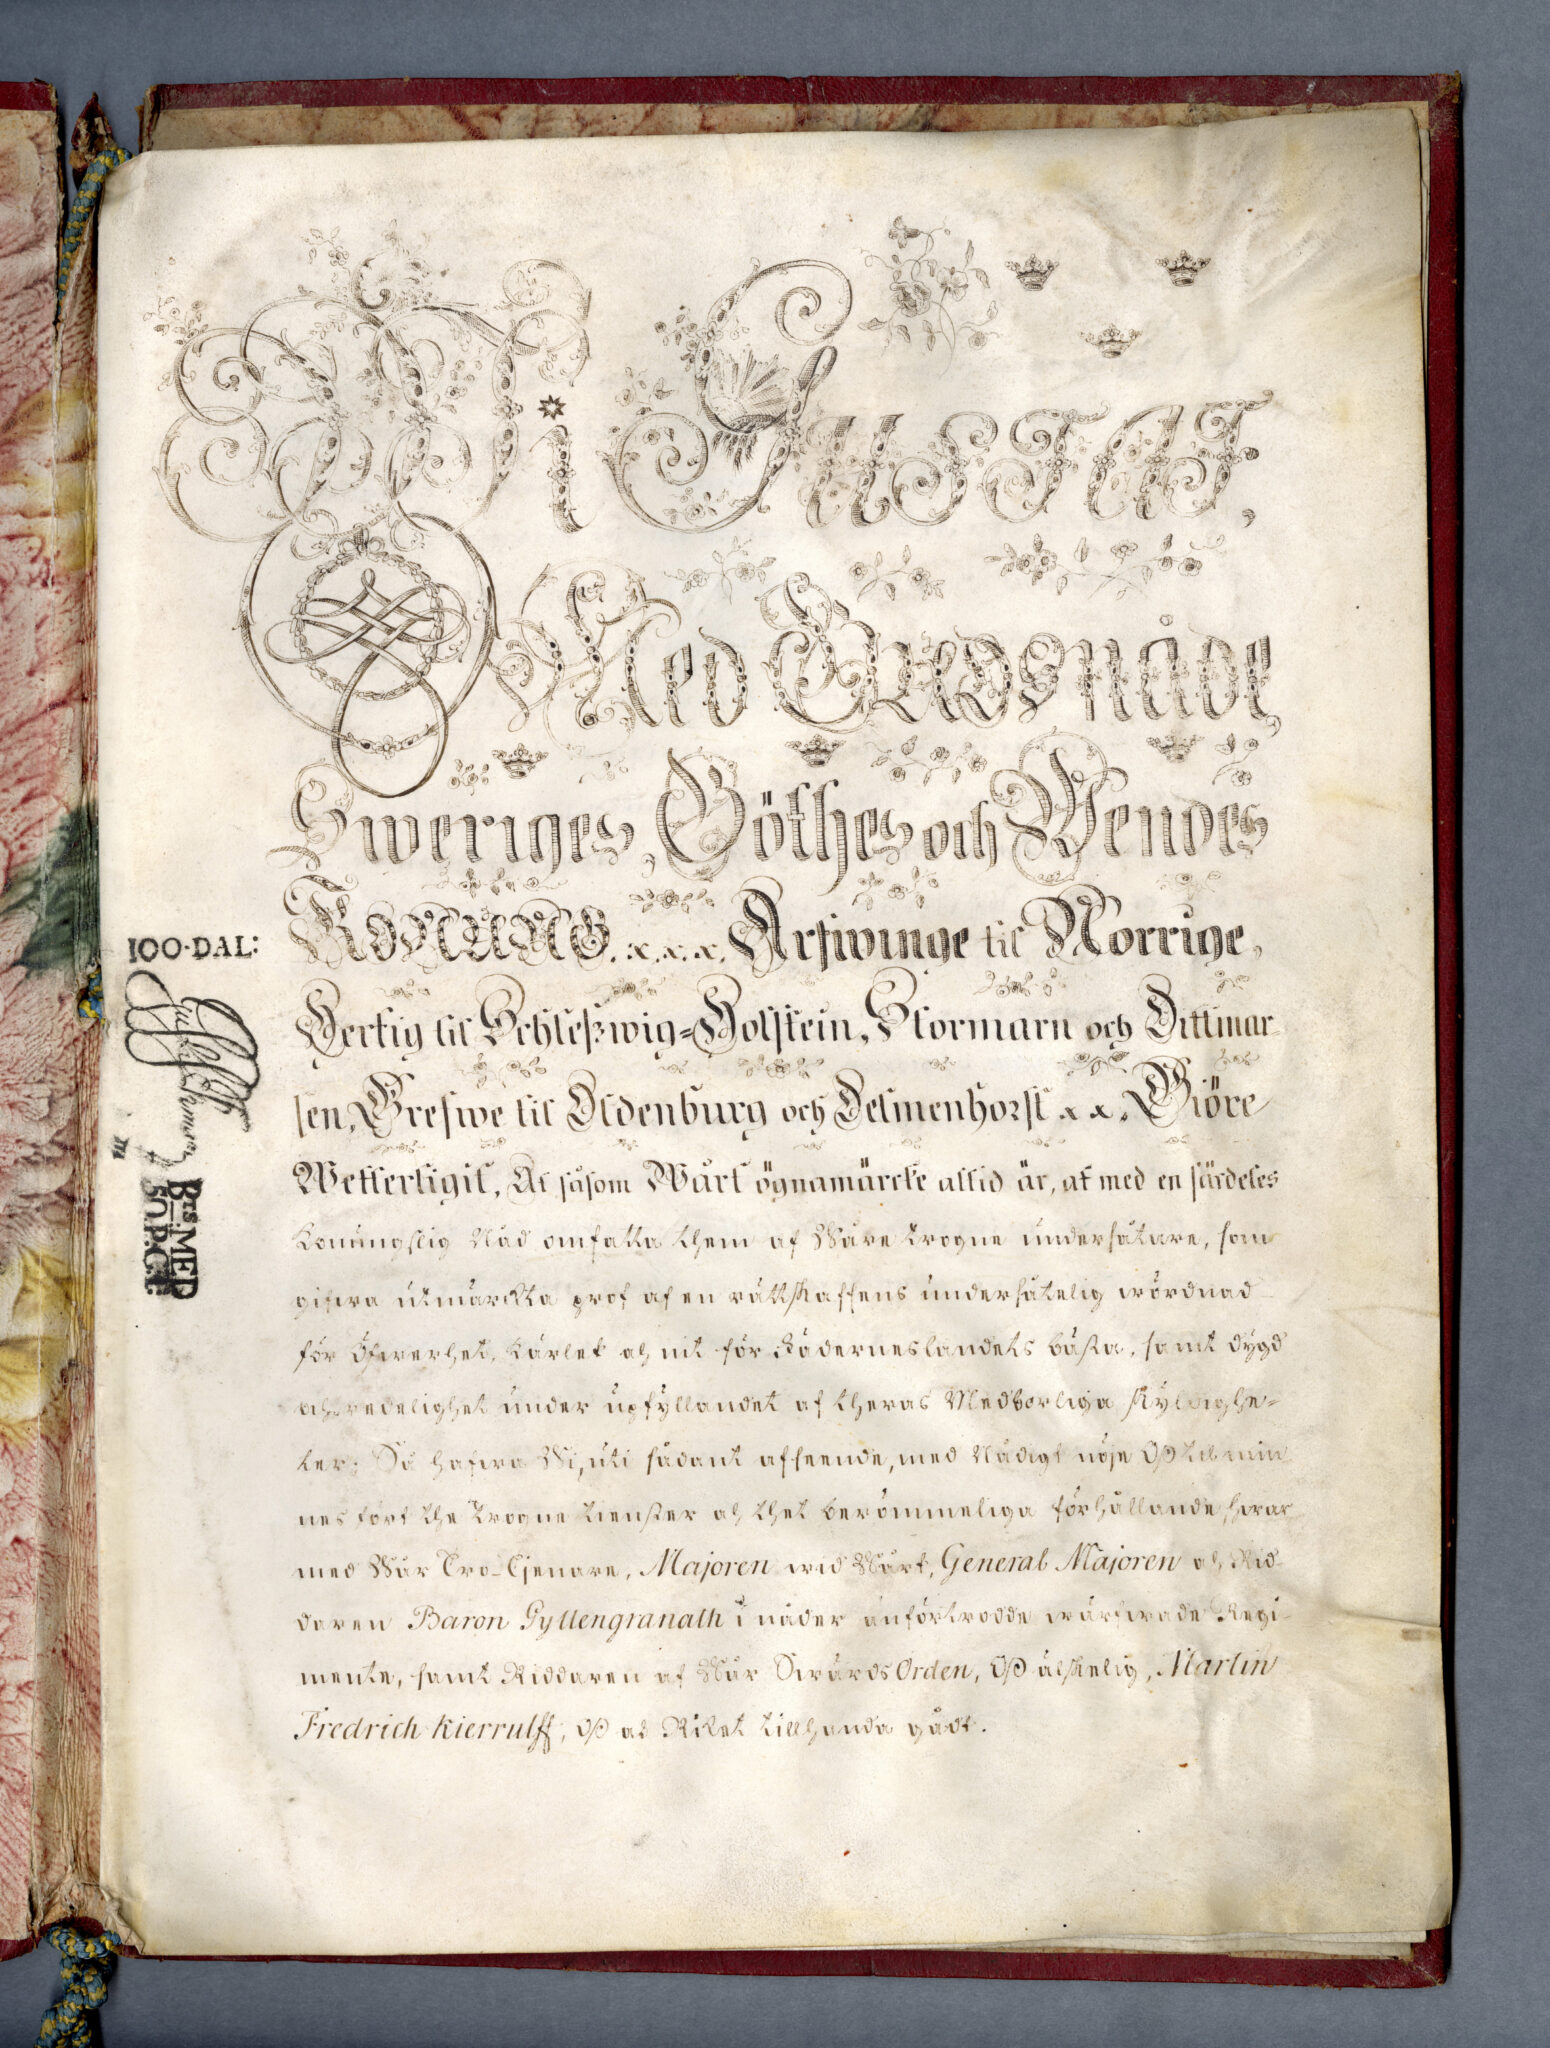 Wi Gustaf,
Med Guds Nåde,
Sweriges, Göthes och Wendes
Konung. x. x. x. Arfwinge til Norrige,
Hertig til Schleßwig=Holstein, Stormarn och Dittmar-
sen, Grefwe til Oldenburg och Delmenhorst x x. Giöre
Wetterligit, At såsom Wårt ögnamärcke altid är, at med en särdeles
Konungslig Nåd omfatta them af Wåre trogne undersåtare, som
gifwa utmärckta prof af en rättskaffens undersåtelig wördnad
för Öfwerhet, kärlek och nit för Fäderneslandets bästa, samt dygd
och redelighet under upfyllandet af theras Medborliga skyldighe-
ter; Så hafwa Wi, uti sådant afseende, med Nådigt nöje Oß til min
nes fört the trogne tienster och thet berömmeliga förhållande, hwar
med Wår Tro-Tjenare, Majoren wid Wårt, General Majoren och Rid-
daren Baron Gyllengranath i nåder anförtrodde wärfwade Regi-
mente, samt Riddaren af Wår Swärds Orden, Oß älskelig, Martin
Fredrich Kierrulff, Oß och Riket tillhanda gådt.
100·DAL:
Bts MED
50.P.Ct: